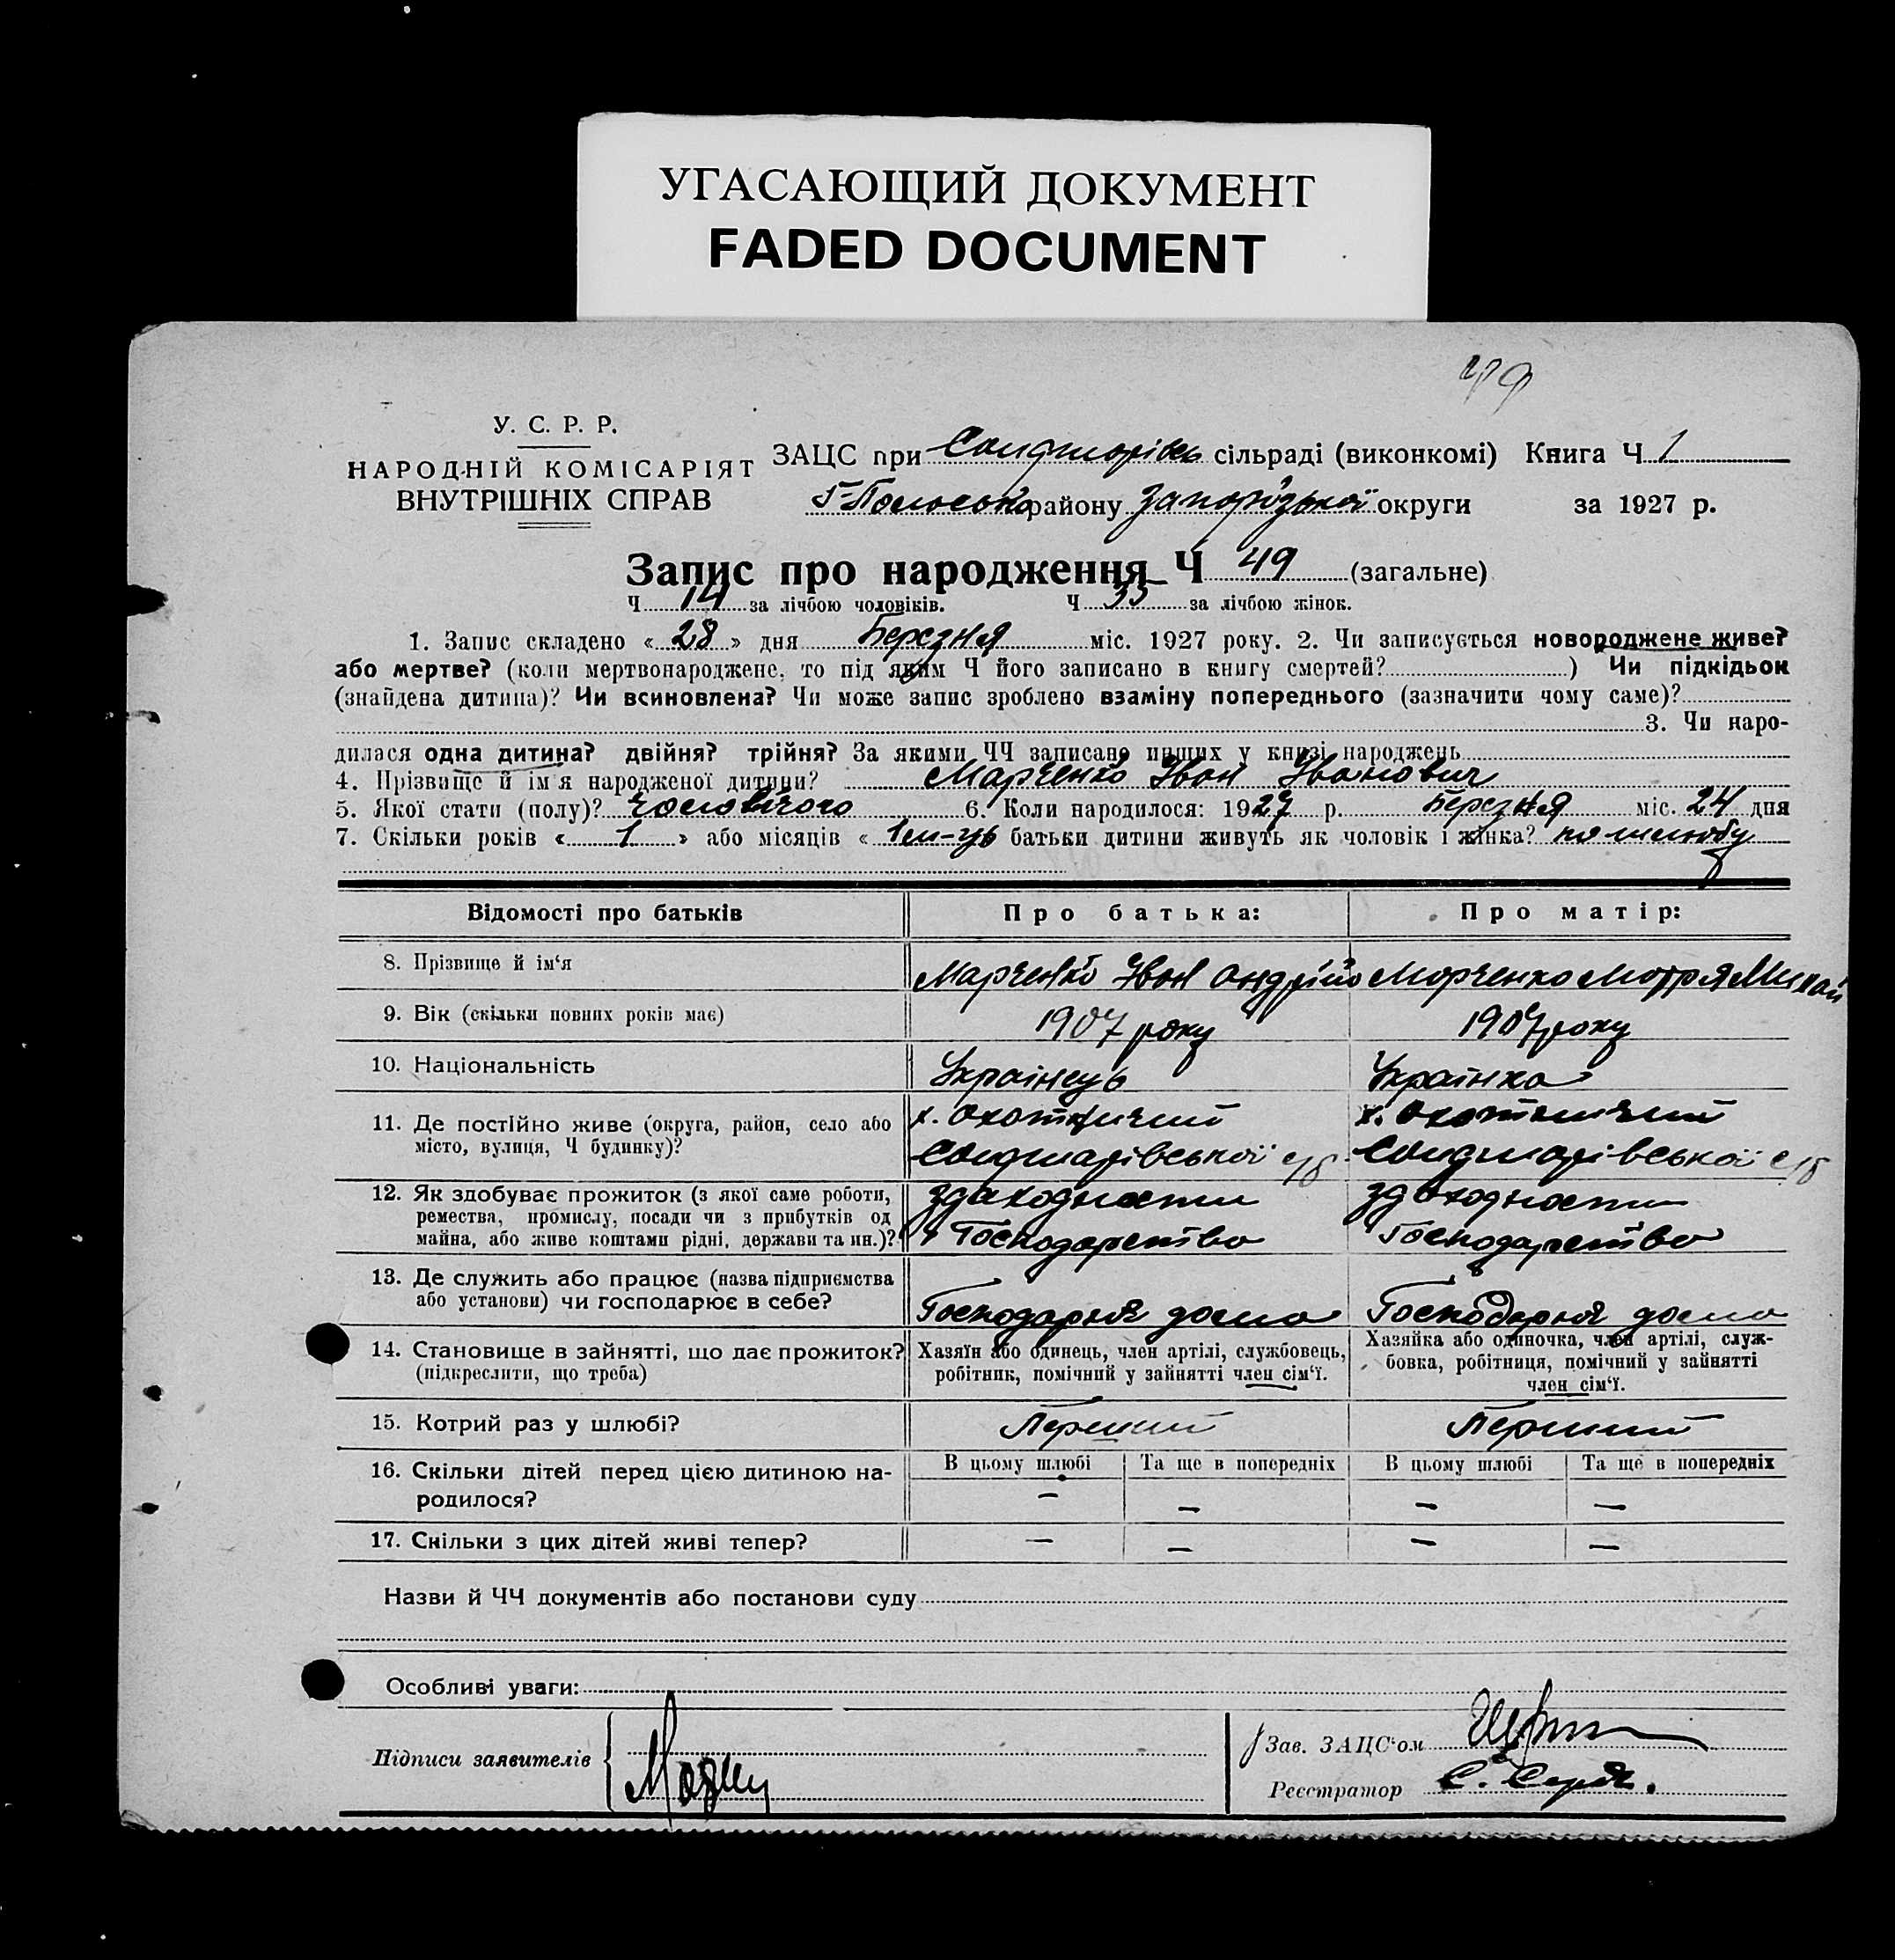 УГАСАЮЩИЙ ДОКУМЕНТ
FADED DOCUMENT
У. С. Р. Р.
НАРОДНІЙ КОМІСАРІЯТ
ВНУТРІШНІХ СПРАВ
ЗАЦС при сільраді (виконкомі) Книга Ч 1
району Запорізької округи за 1927 р.
Запис про народження Ч 49 (загальне)
Ч 14 за лічбою чоловіків. Ч 35 за лічбою жінок.
1. Запис складено « 28 » дня Березня міс. 1927 року. 2. Чи записується новороджене живе?
або мертве? (коли мертвонароджене, то під яким Ч його записано в книгу смертей? ) Чи підкідьок
(знайдена дитина)? Чи всиновлена? Чи може запис зроблено взаміну попереднього (зазначити чому саме)?
3. Чи наро-
дилася одна дитина? двійня? трійня? За якими ЧЧ записано инших у книзі народжень
4. Прізвище й ім'я народженої дитини? Марченко Іван Іванович
5. Якої стати (полу)? чоловічого 6. Коли народилося: 1927 р. Березня міс. 24 дня
7. Скільки років « 1 » або місяців « 1 м-ць батьки дитини живуть як чоловік і жінка? по шлюбу
Відомості про батьків Про батька: Про матір:
8. Прізвище й ім'я Марченко Іван Андрійо Марченко Мотря Михай
9. Вік (скільки повних років має) 1907 року 1907 року
10. Національність Українець Українка
11. Де постійно живе (округа, район, село або х. Охотничий х. Охотничий
місто, вулиця, Ч будинку)? с/р с/р
12. Як здобуває прожиток (з якої саме роботи, здоходности здоходности
ремества, промислу, посади чи з прибутків од
майна, або живе коштами рідні, держави та ин.)? Господарство Господарство
13. Де служить або працює (назва підприємства
або установи) чи господарює в себе? Господарює дома Господарює дома
14. Становище в зайнятті, що дає прожиток? Хазяїн або одинець, член артілі, службовець, Хазяйка або одиночка, член артілі, служ-
(підкреслити, що треба) робітник, помічний у зайнятті член сім'ї. бовка, робітниця, помічний у зайнятті
член сім'ї.
15. Котрий раз у шлюбі? Перший Перший
16. Скільки дітей перед цією дитиною на- В цьому шлюбі Та ще в попередніх В цьому шлюбі Та ще в попередніх
родилося? — — — —
17. Скільки з цих дітей живі тепер? — — — —
Назви й ЧЧ документів або постанови суду
Особливі уваги:
Підписи заявителів
Зав. ЗАЦС'ом
Реєстратор